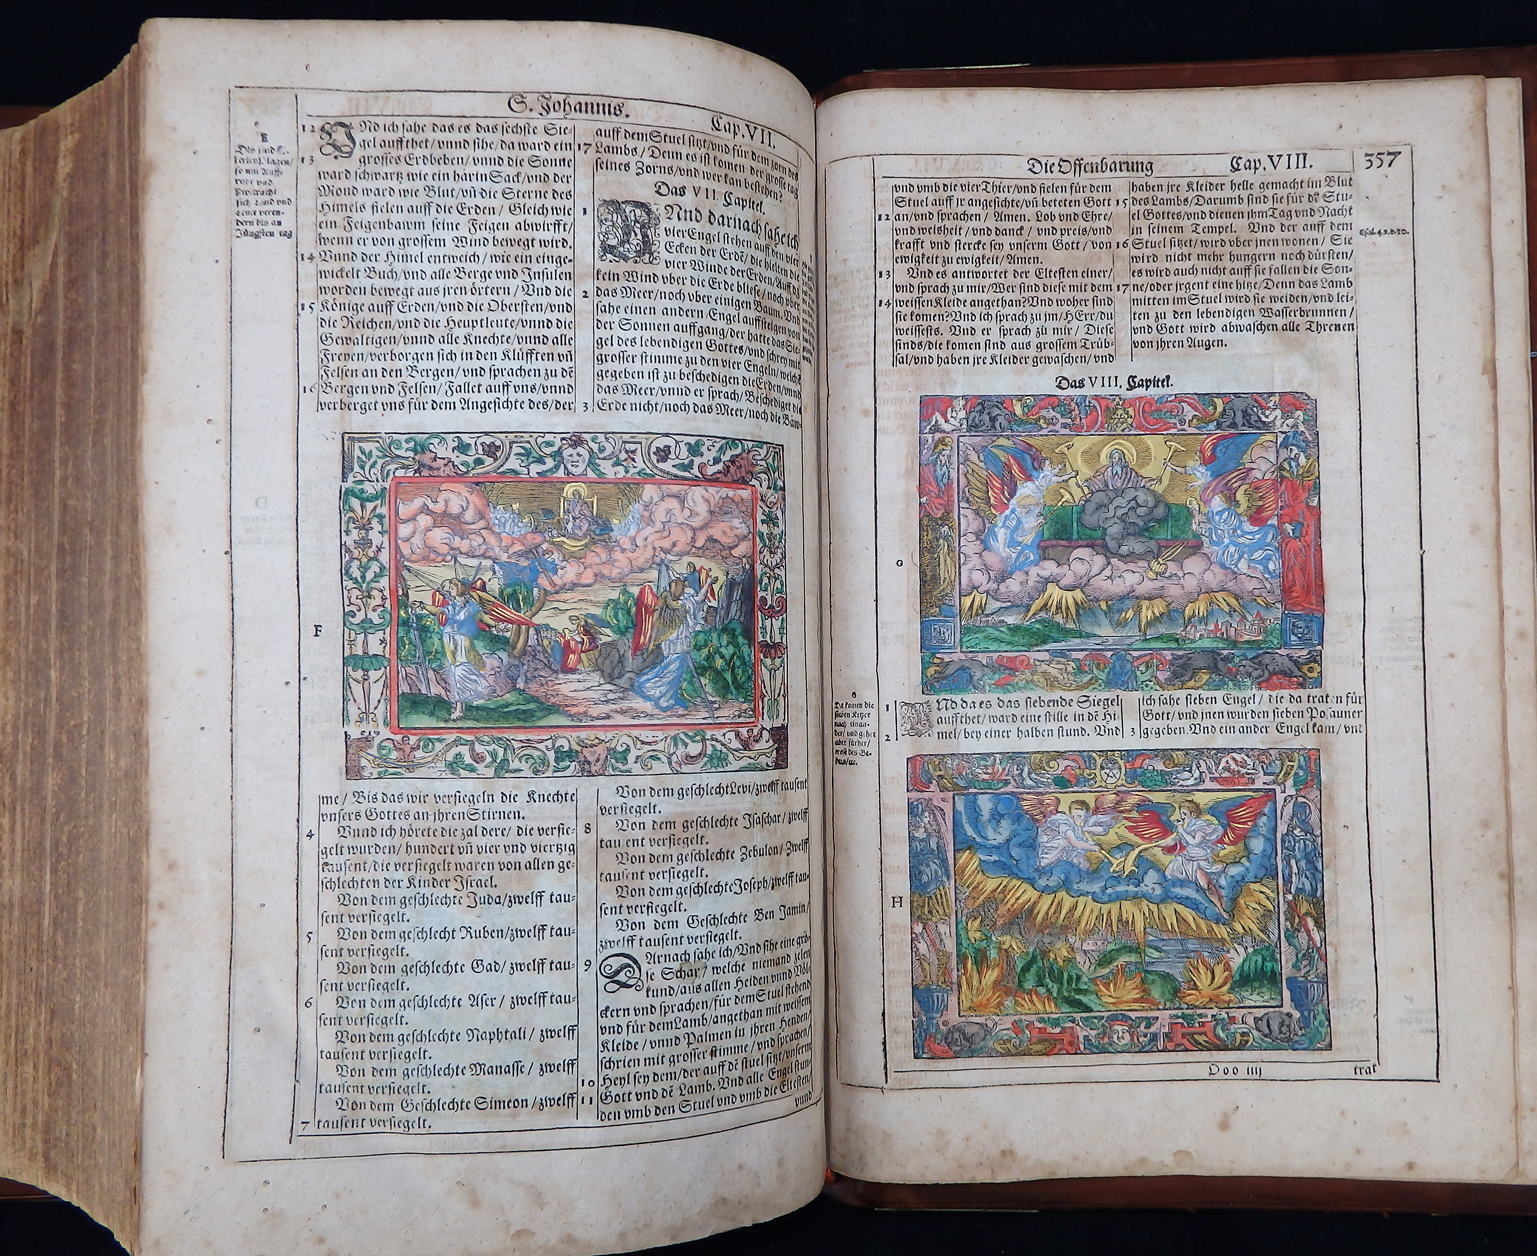 S. Johannis.
Cap. VII.
12 UNd ich sahe das es das sechste Sie-
gel auffthet/ vnnd sihe/da ward ein
13 grosses Erdbeben/ vnnd die Sonne
ward schwartz wie ein härin Sack/vnd der
Mond ward wie Blut/vñ die Sterne des
Himels fielen auff die Erden/ Gleich wie
ein Feigenbawm seine Feigen abwirfft/
wenn er von grossem Wind bewegt wird.
14 Vnnd der Himel entweich/ wie ein einge-
wickelt Buch/vnd alle Berge vnd Insulen
worden bewegt aus jren örtern/ Vnd die
15 Könige auff Erden/vnd die Obersten/vnd
die Reichen/vnd die Heuptleute/vnnd die
Gewaltigen/vnnd alle Knechte/vnnd alle
Freyen/verborgen sich in den Klüfften vñ
Felsen an den Bergen/ vnd sprachen zu dē
16 Bergen vnd Felsen/ Fallet auff vns/vnnd
verberget vns für dem Angesichte des/der
auff dem Stuel sitzt/vnd für dem zorn des
17 Lambs/ Denn es ist komen der grosse tag
seines Zorns/vnd wer kan bestehen?
Das VII. Capitel.
1 VNnd darnach sahe ich
vier Engel stehen auff den vier
Ecken der Erdē/ die hielten die
vier Winde der Erden/ Auff dz
kein Wind vber die Erde bliese/ noch vber
2 das Meer/noch vber einigen Baum. Vnd
sahe einen andern Engel auffsteigen von
der Sonnen auffgang/der hatte das Sie-
gel des lebendigen Gottes/vnd schrey mit
grosser stimme zu den vier Engeln/welchē
gegeben ist zu beschedigen die Erden/vnnd
das Meer/vnnd er sprach/ Beschediget die
3 Erde nicht/noch das Meer/noch die Bäw-
F
me/ Bis das wir versiegeln die Knechte
vnsers Gottes an jhren Stirnen.
4 Vnnd ich hörete die zal dere/ die versie-
gelt wurden/ hundert vñ vier vnd viertzig
tausent/die versiegelt waren von allen ge-
schlechten der Kinder Jsrael.
Von dem geschlechte Juda/zwelff tau-
sent versiegelt.
5 Von dem geschlecht Ruben/zwelff tau-
sent versiegelt.
Von dem geschlechte Gad/ zwelff tau-
sent versiegelt.
6 Von dem geschlechte Aser/ zwelff tau-
sent versiegelt.
Von dem geschlechte Naphtali/ zwelff
tausent versiegelt.
Von dem geschlechte Manasse/ zwelff
tausent versiegelt.
Von dem Geschlechte Simeon/zwelff
7 tausent versiegelt.
Von dem geschlecht Levi/zwelff tausent
versiegelt.
8 Von dem geschlechte Jsaschar/ zwelff
tau ent versiegelt.
Von dem geschlechte Zebulon/ Zwelff
tausent versiegelt.
Von dem geschlechte Joseph/zwelff tau-
sent versiegelt.
Von dem Geschlechte Ben Jamin/
zwelff tausent versiegelt.
9 DArnach sahe ich/Vnd sihe eine gros-
se Schar/ welche niemand zelen
kund/aus allen Heiden vnnd Völ-
ckern vnd sprachen/für dem Stuel stehend
vnd für dem Lamb/angethan mit weissem
Kleide/ vnnd Palmen in jhren Henden/
schrien mit grosser stimme/ vnd sprachen/
10 Heyl sey dem/der auff dē stuel sitzt/vnserm
11 Gott vnd dē Lamb. Vnd alle Engel stun-
den vmb den Stuel vnd vmb die Eltesten/
vnnd
Die Offenbarung
Cap. VIII.
357
vnd vmb die vier Thier/vnd fielen für dem
Stuel auff jr angesichte/vñ beteten Gott
12 an/vnd sprachen/ Amen. Lob vnd Ehre/
vnd weisheit/ vnd danck / vnd preis/vnd
krafft vnd stercke sey vnserm Gott / von
ewigkeit zu ewigkeit/ Amen.
13 Vnd es antwortet der Eltesten einer/
vnd sprach zu mir/ Wer sind diese mit dem
14 weissen Kleide angethan? Vnd woher sind
sie komen? Vnd ich sprach zu jm/ HErr/du
weissests. Vnd er sprach zu mir / Diese
sinds/die komen sind aus grossem Trüb-
sal/vnd haben jre Kleider gewaschen/ vnd
haben jre Kleider helle gemacht im Blut
15 des Lambs/Darumb sind sie für dē Stu-
el Gottes/vnd dienen jhm Tag vnd Nacht
in seinem Tempel. Vnd der auff dem
16 Stuel sitzet/ wird vber jnen wonen / Sie
wird nicht mehr hungern noch dürsten/
es wird auch nicht auff sie fallen die Son-
17 ne/oder jrgent eine hitze/Denn das Lamb
mitten im Stuel wird sie weiden/vnd lei-
ten zu den lebendigen Wasserbrunnen/
vnd Gott wird abwaschen alle Threnen
von jhren Augen.
Das VIII. Capitel.
G
G
Da komen die
sieben Ketzer
nach einan-
der/ vnd gehet
aber fürher/
1 VNd da es das siebende Siegel
auffthet/ ward eine stille in dē Hi-
2 mel/ bey einer halben stund. Vnd
ich sahe sieben Engel / die da traten für
Gott/ vnd jnen wurden sieben Posauner
3 gegeben. Vnd ein ander Engel kam/ vnd
H
Ooo iiij
trat